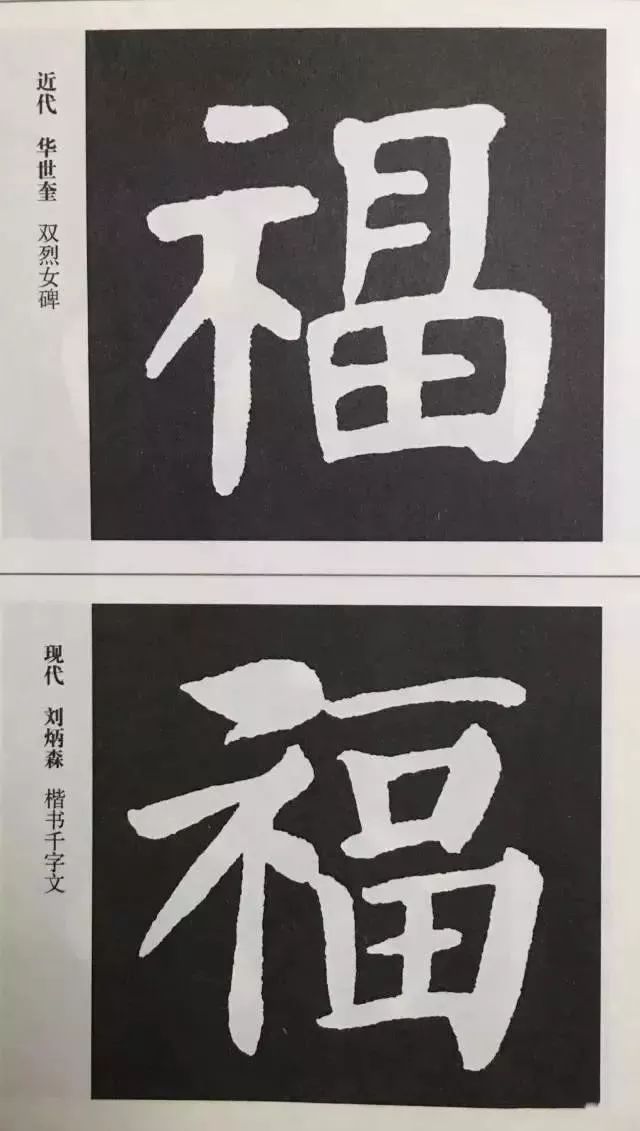 近代 华世奎 双烈女碑
福
现代 刘炳森 楷书千字文
福